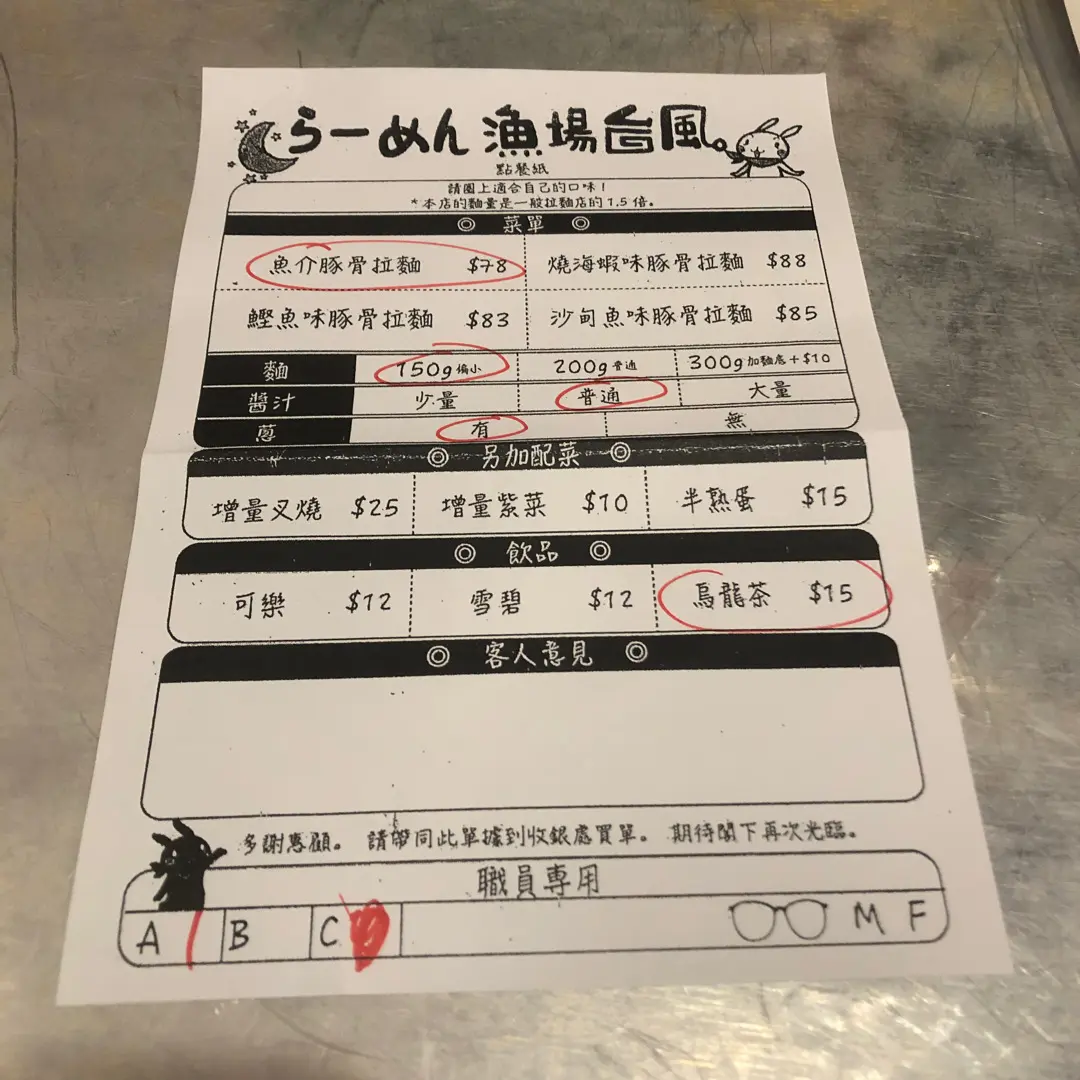 らーめん 漁場台風
點餐紙
請圈上適合自己的口味！
*本店的麵量是一般拉麵店的1.5倍。
◎ 菜單 ◎
魚介豚骨拉麵 $78 燒海蝦味豚骨拉麵 $88
鰹魚味豚骨拉麵 $83 沙甸魚味豚骨拉麵 $85
麵 150g 偏小 200g 普通 300g 加麵底+$10
醬汁 少量 普通 大量
蔥 有 無
◎ 另加配菜 ◎
增量叉燒 $25 增量紫菜 $10 半熟蛋 $15
◎ 飲品 ◎
可樂 $12 雪碧 $12 烏龍茶 $15
◎ 客人意見 ◎
多謝惠顧。 請帶同此單據到收銀處買單。 期待閣下再次光臨。
職員專用
A B C M F